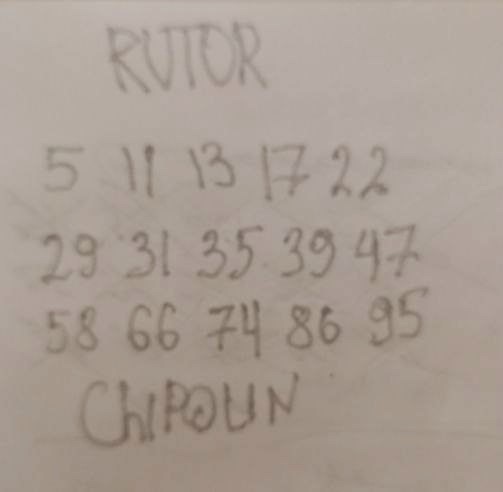 RUTOR
5 11 13 17 22
29 31 35 39 47
58 66 74 86 95
CHIPOLIN